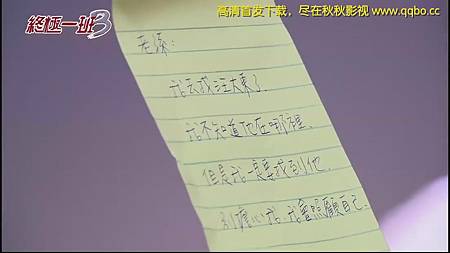 終極一班3
高清首发下载，尽在秋秋影视 www.qqbo.cc
老謀：
我去找汪大東了
我不知道他在哪裡.
但是我一定要找到他.
別擔心我.我會照顧自己.